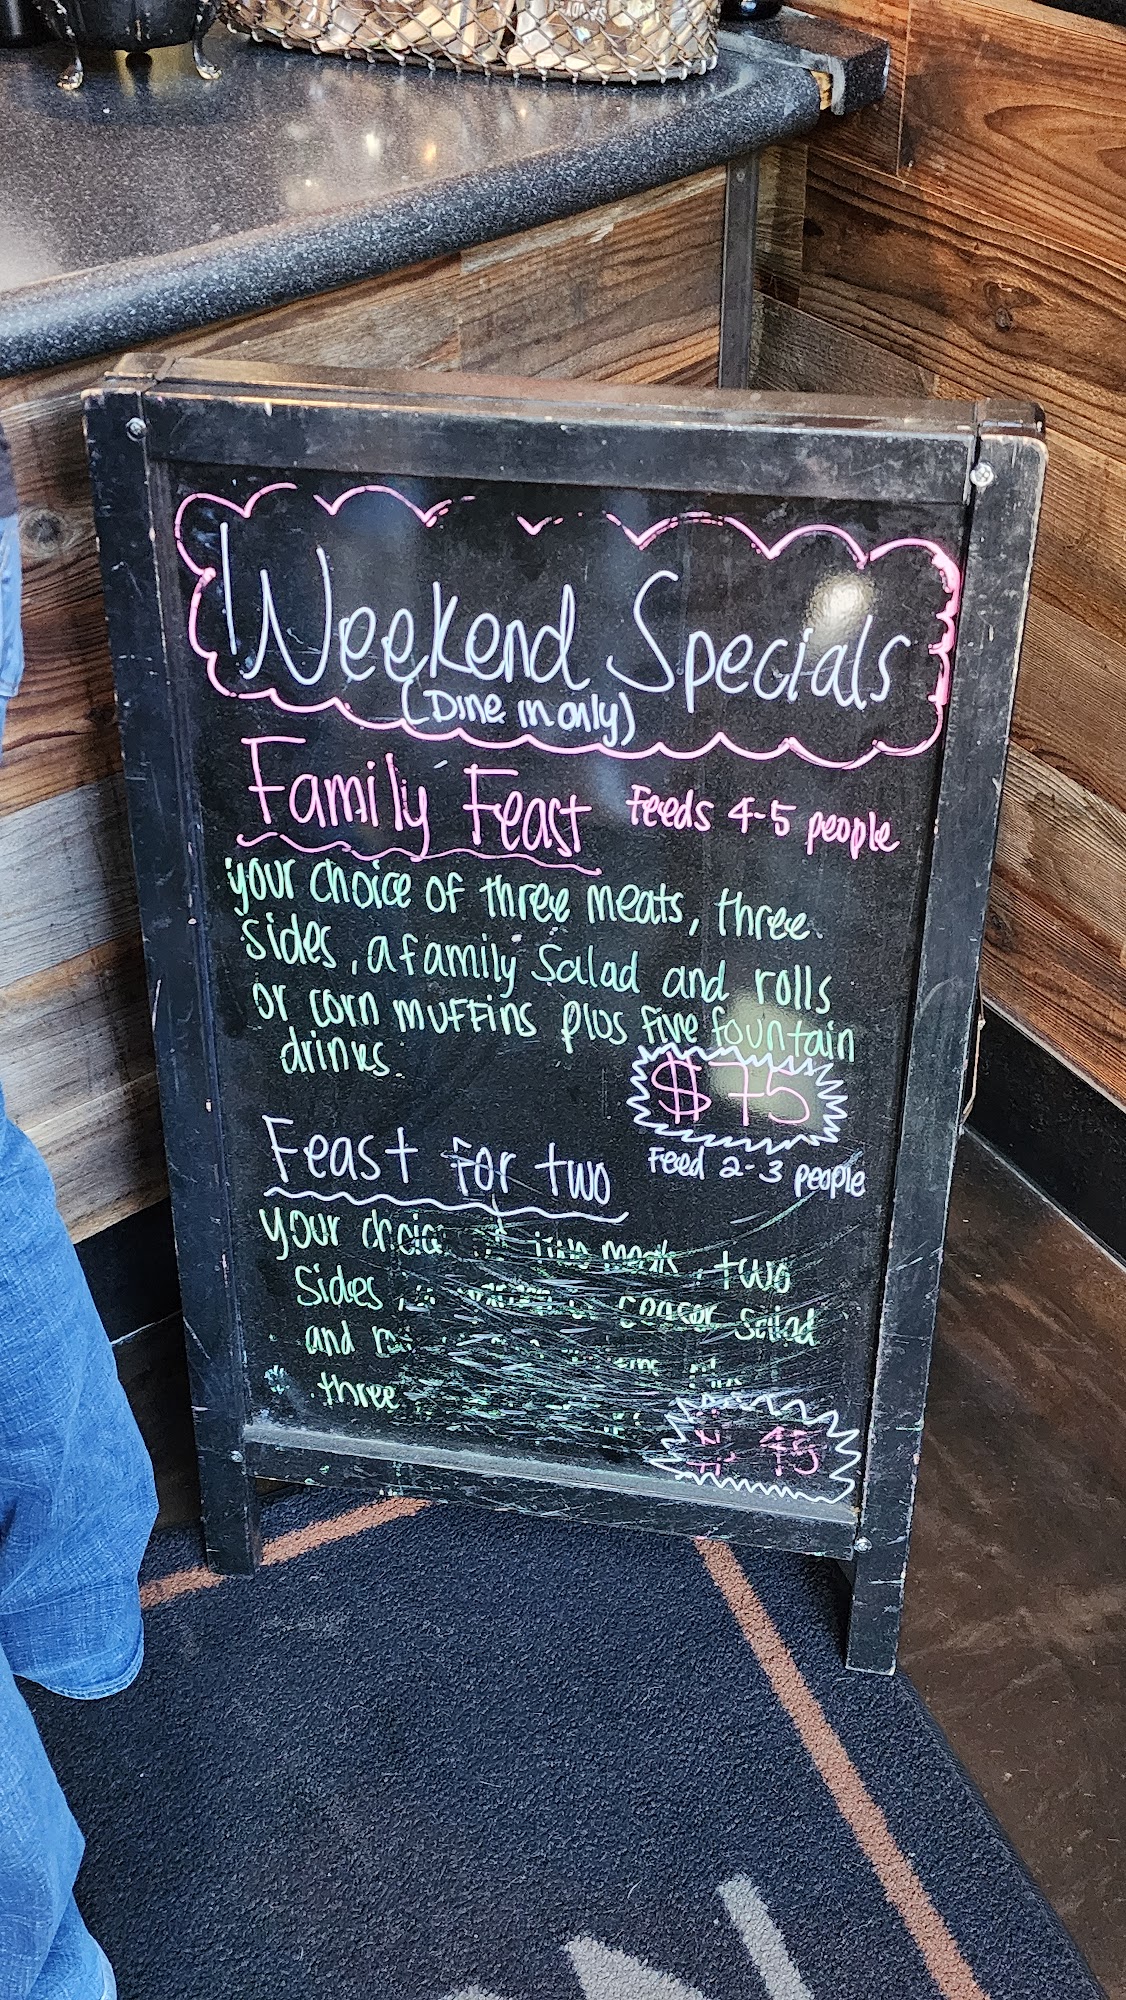 Weekend Specials
(Dine in only)
Family Feast Feeds 4-5 people
your choice of three meats, three
sides, a family Salad and rolls
or corn muffins plus five fountain
drinks.
$75
Feast for two Feed 2-3 people
your choice two meats, two
Sides, Ceaser Salad
and
three
45